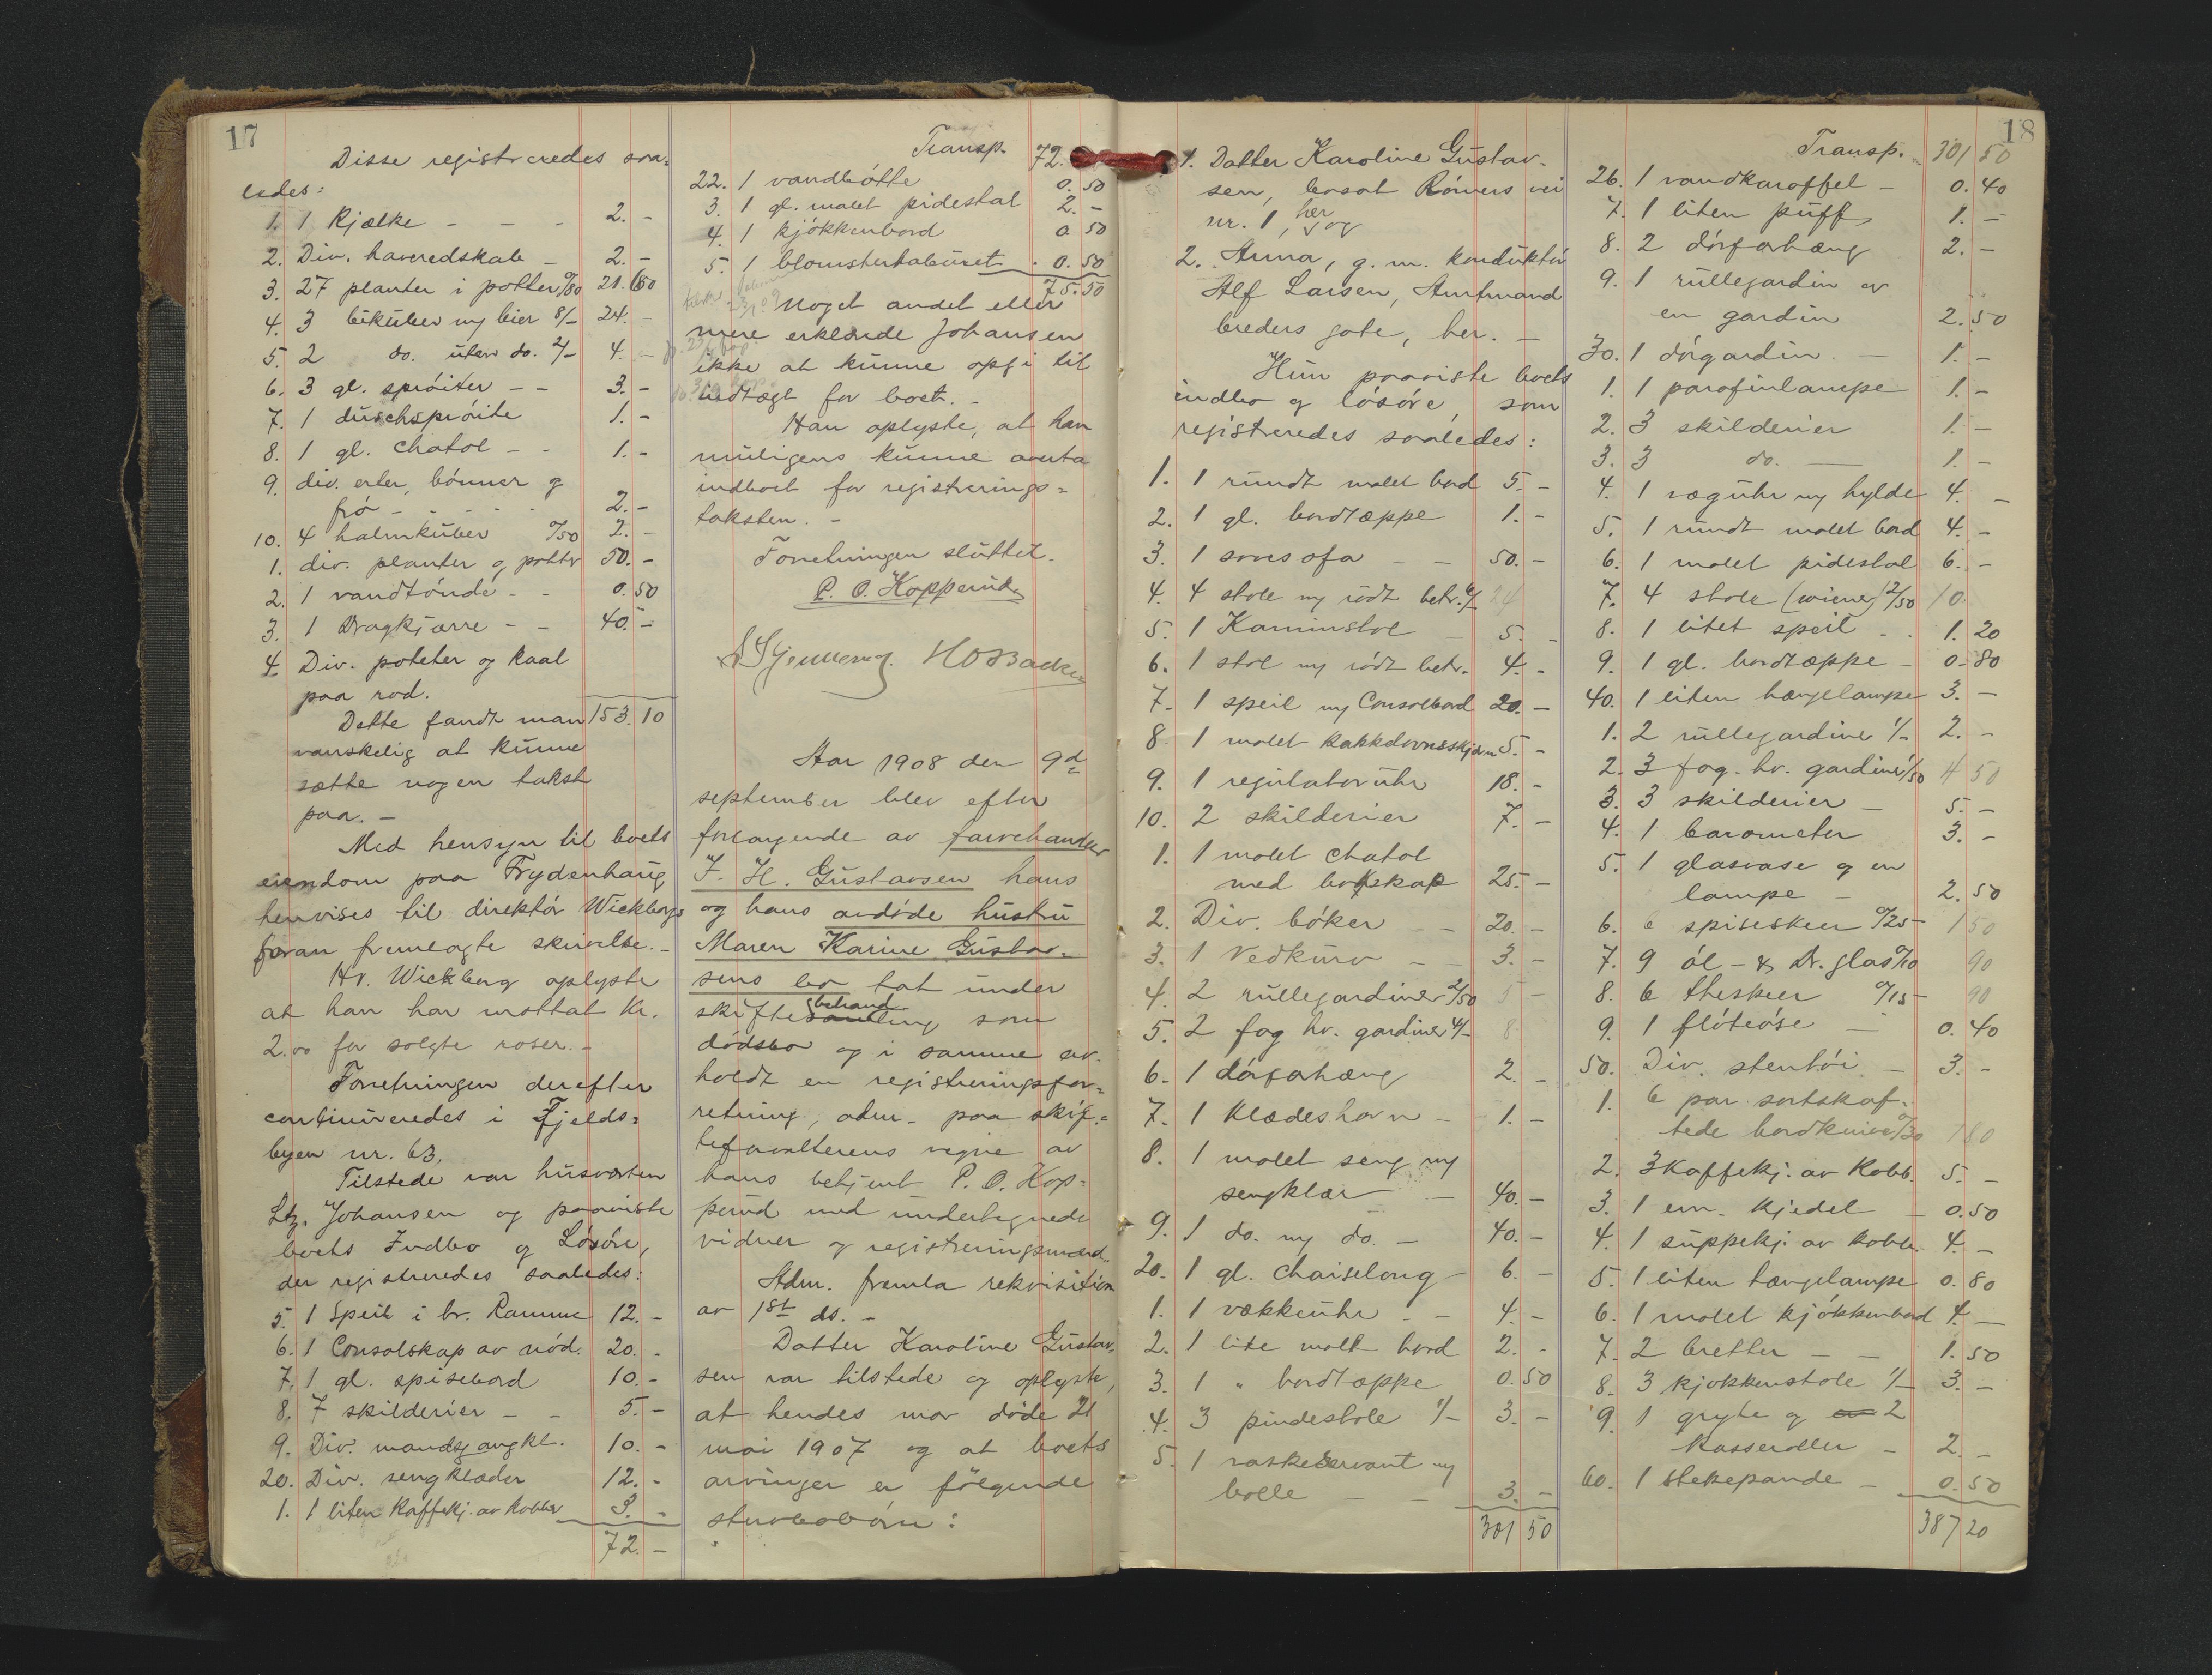 17
Disse registreredes saa-
ledes:
1. 1 Kjælke - - - 2. -
2. Div. haveredskab - 2. -
3. 27 planter i potter 0/80 21.60
4. 3 bikuber m/ bier 8/- 24. -
5. 2 do. uten do. 2/- 4. -
6. 3 gl. spröiter - - 3. -
7. 1 duschspröite 1. -
8. 1 gl. chatol - - 1. -
9. div. erter, bönner og
frö - - - - 2. -
10. 4 halmkuber 0/50 2. -
1. div. planter og potter 50. -
2. 1 vandtönde - - 0.50
3. 1 Dragkjærre - - 40. -
4. Div. poteter og kaal
paa rod.
Dette fandt man 153.10
vanskelig at kunne
sætte nogen takst
paa. -
Med hensyn til boets
eiendom paa Frydenhaug
henvises til direktör Wickbergs
foran fremlagte skrivelse. -
Hr. Wickberg oplyste
at han har mottat kr.
2.00 for solgte roser. -
Forretningen derefter
continueredes i Fjelds-
byen nr. 63.
Tilstede var husverten
Johansen og paaviste
boets Indbo og Lösöre,
der registreredes saaledes:
5. 1 Speil i br. Ramme 12. -
6. 1 Consolskap av nöd. 20. -
7. 1 gl. spisebord 10. -
8. 7 skilderier - - 5. -
9. Div. mandsgangkl. 10. -
20. Div. sengklæder 12. -
1. 1 liten Kaffekj. av Kobber 3. -
72. -
Transp. 72.
22. 1 vandbötte 0.50
3. 1 gl. malet pidestal 2. -
4. 1 kjökkenbord 0.50
5. 1 blomstertaburet. 0.50
75.50
Noget andet eller
mere erklærede Johansen
ikke at kunne opgi til
indtægt for boet. -
Han oplyste, at han
muligens kunne overta
indboet for registrerings-
taksten. -
Forretningen sluttet.
P. O. Kopperud
H O Backe
Aar 1908 den 9d
september blev efter
forlangende av farvehandler
J. H. Gustavsen hans
og hans avdöde hustru
Maren Karine Gustav-
sens bo tat under
skiftebehandling som
dödsbo og i samme av-
holdt en registreringsfor-
retning, adm. paa skif-
teforvalterens vegne av
hans betjent P. O. Kop-
perud med undertegnede
vidner og registreringsmænd.
Adm. fremla rekvisition
av 1st ds. -
Datter Karoline Gustav-
sen var tilstede og oplyste,
at hendes mor döde 21
mai 1907 og at boets
arvinger er fölgende
stervbobörn:
18
1. Datter Karoline Gustav-
sen, bosat Römers vei
nr. 1, her og
2. Anna, g. m. konduktör
Alf Larsen, Amtmand
breders gate, her. -
Hun paaviste boets
indbo og lösöre, som
registreredes saaledes:
1. 1 rundt malet bord 5. -
2. 1 gl. bordtæppe 1. -
3. 1 sovesofa - - 50. -
4. 4 stole m/ rödt betr. 6/- 24
5. 1 Kaminstol - 5. -
6. 1 stol m/ rödt betr. 4. -
7. 1 speil m/ Consolbord 20. -
8. 1 malet kakkelovnsskjærm 5. -
9. 1 regulatoruhr 18. -
10. 2 skilderier 7. -
1. 1 malet chatol
med bokskap 25. -
2. Div. böker - - 20. -
3. 1 Vedkurv - - 3. -
4. 2 rullegardiner 2/50 5 -
5. 2 fag hv. gardiner 4/- 8
6. 1 dörforhæng 2. -
7. 1 Klædeshavn - 1. -
8. 1 malet seng m/
sengklær - 40. -
9. 1 do. m/ do. - 40. -
20. 1 gl. chaiselong - 6. -
1. 1 vækkeuhr - - 4. -
2. 1 lite malt bord 2. -
3. 1 " bordtæppe 0.50
4. 3 pindestole 1/- 3. -
5. 1 vaskeservant m/
bolle - - 3. -
301 50
Transp. 301 50
26. 1 vandkaraffel - 0.40
7. 1 liten puff 1. -
8. 2 dörforhæng 2. -
9. 1 rullegardin og
en gardin 2.50
30. 1 dörgardin. - 1. -
1. 1 parafinlampe 1. -
2. 3 skilderier 1. -
3. 3 do. - 1. -
4. 1 væguhr m/ hylde 4. -
5. 1 rundt malet bord 4. -
6. 1 malet pidestal 6. -
7. 4 stole (wiener) 2/50 10
8. 1 litet speil - . 1.20
9. 1 gl. bordtæppe - 0.80
40. 1 liten hængelampe 3. -
1. 2 rullegardiner 1/- 2. -
2. 3 fag. hv. gardiner 1/50 4 50
3. 3 skilderier - 5. -
4. 1 barometer 3. -
5. 1 glasvase og en
lampe - 2.50
6. 6 spiseskeer 0/25 - 1 50
7. 9 öl- & Dr. glas 0/10 90
8. 6 theskeer 0/15 - 90
9. 1 flöteöse - 0.40
50. Div. stentöi. - 3. -
1. 6 par sortskaf-
tede bordkniver 0/30 1 80
2. 3 Kaffekj. av Kobb. 5. -
3. 1 em. Kjedel - 0.50
4. 1 suppekj. av Kobb. 4. -
5. 1 liten hængelampe 0.80
6. 1 malet kjökkenbord 4. -
7. 2 bretter - - 1.50
8. 3 kjøkkenstole 1/- 3. -
9. 1 gryte og 2
Kasseroller - 2. -
60. 1 stekepande - 0.50
387 20